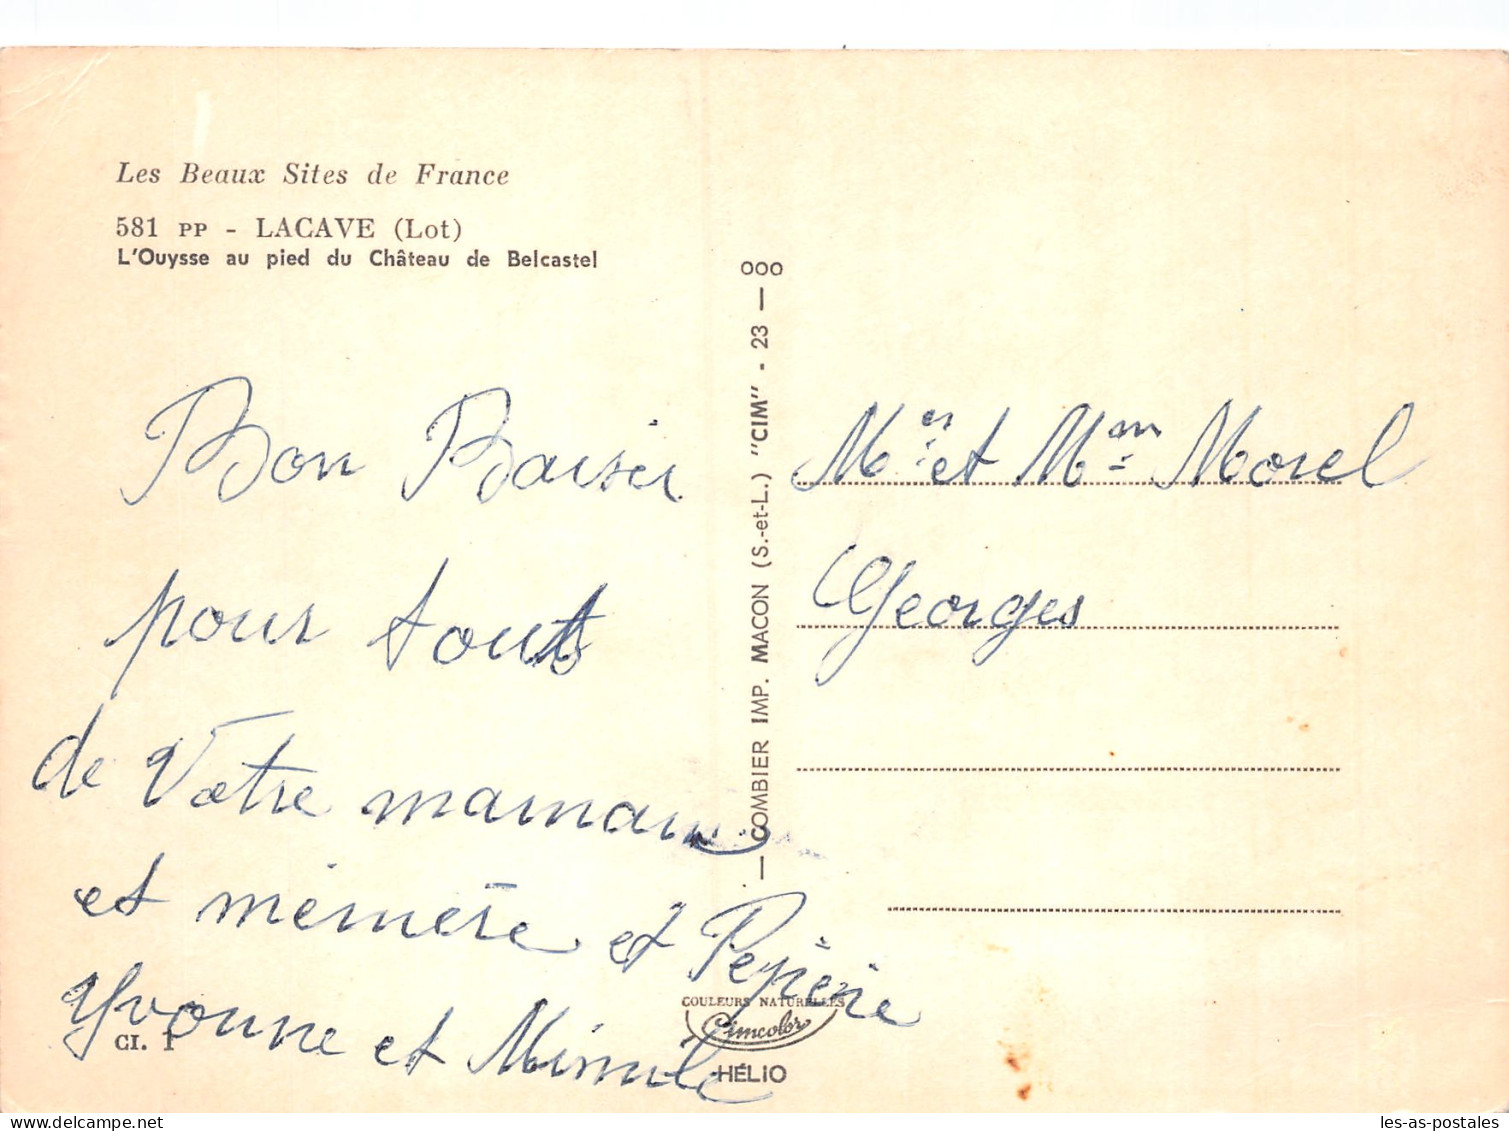 Les Beaux Sites de France
581 PP - LACAVE (Lot)
L'Ouysse au pied du Château de Belcastel
Bon Baiser
pour tout
de Votre maman
et mémère et Pepère
Yvonne et
CI. 1
COMBIER IMP. MACON (S.-et-L.) "CIM" - 23 — 000
Mer et Mme Morel
Georges
COULEURS NATURELLES
Cimcolor
HÉLIO
les-as-postales
https://www.delcampe.net